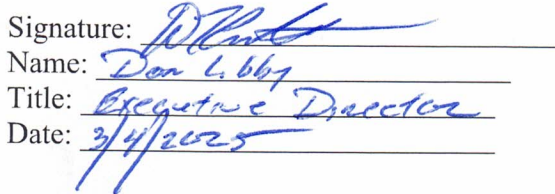 Signature:
Name: Don Libby
Title: Executive Director
Date: 3/4/2025